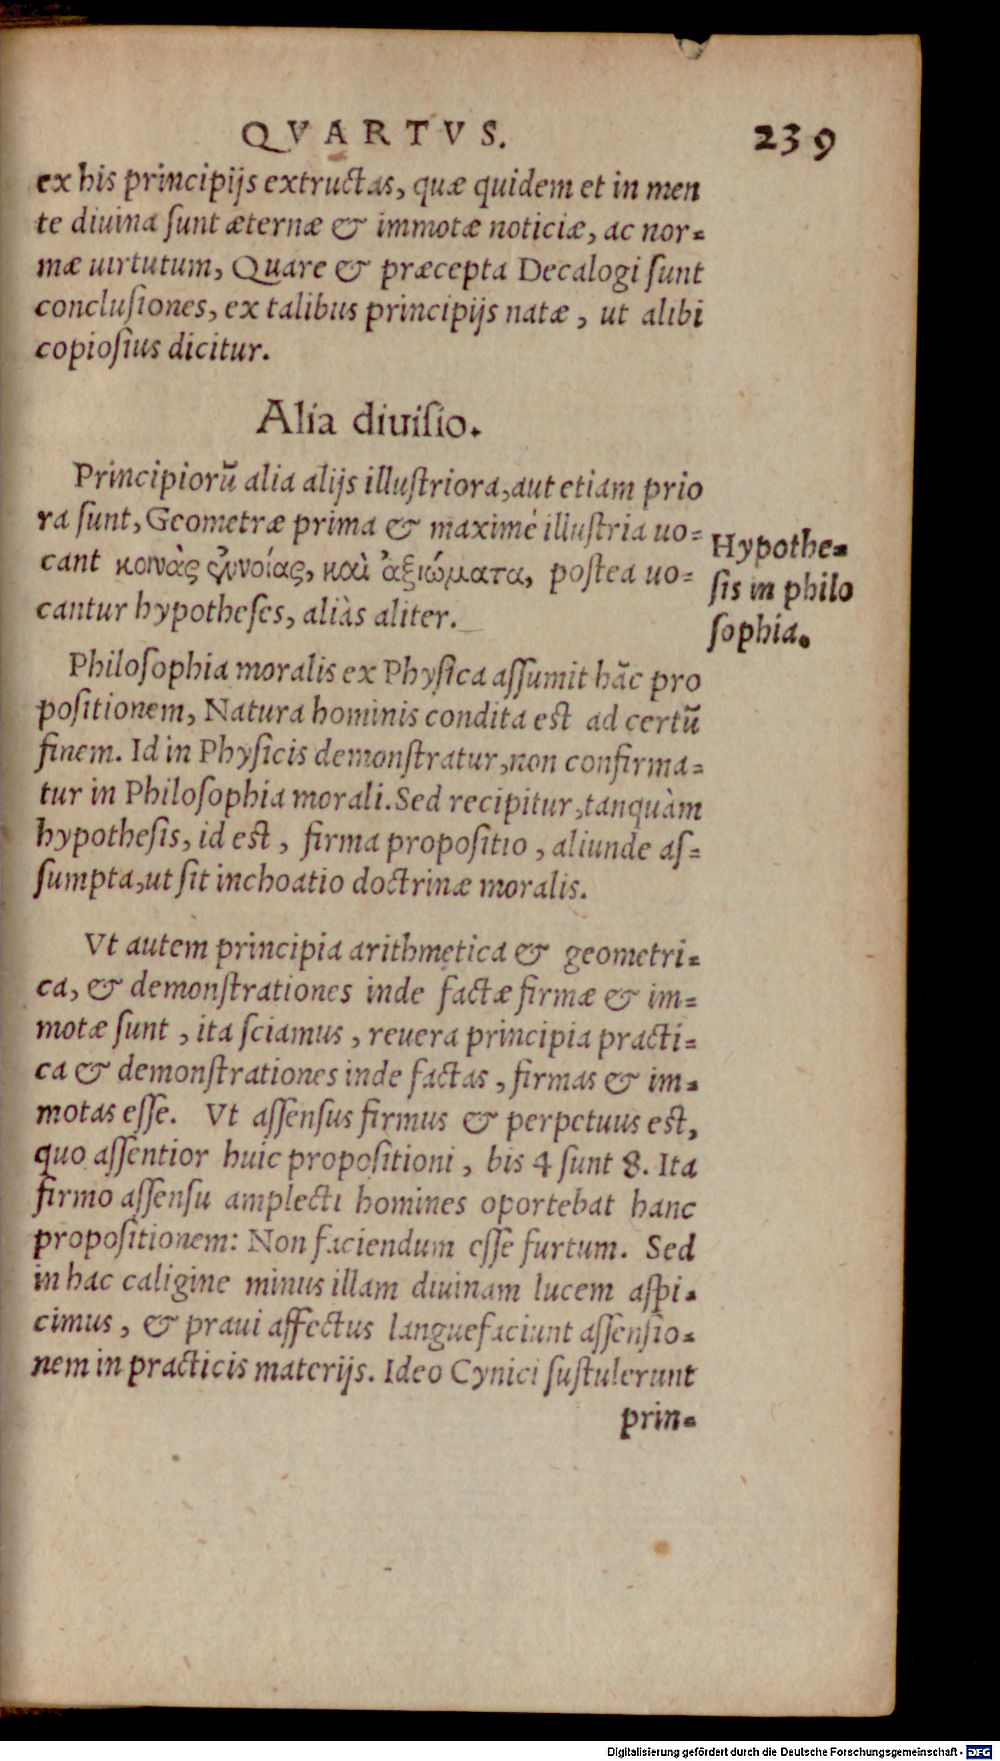 QVARTVS. 239
ex his principijs extructas, quæ quidem et in men
te diuina sunt æternæ & immotæ noticiæ, ac nor=
mæ uirtutum, Quare & præcepta Decalogi sunt
conclusiones, ex talibus principijs natæ, ut alibi
copiosius dicitur.
Alia diuisio.
Principiorū alia alijs illustriora, aut etiam prio
ra sunt, Geometræ prima & maximè illustria uo=
cant κοινὰς ἐννοίας, καὶ ἀξιώματα, postea uo=
cantur hypotheses, aliàs aliter.
Hypothe=
sis in philo
sophia.
Philosophia moralis ex Physica assumit hāc pro
positionem, Natura hominis condita est ad certū
finem. Id in Physicis demonstratur, non confirma=
tur in Philosophia morali. Sed recipitur, tanquàm
hypothesis, id est, firma propositio, aliunde as=
sumpta, ut sit inchoatio doctrinæ moralis.
Vt autem principia arithmetica & geometri=
ca, & demonstrationes inde factæ firmæ & im=
motæ sunt, ita sciamus, reuera principia practi=
ca & demonstrationes inde factas, firmas & im=
motas esse. Vt assensus firmus & perpetuus est,
quo assentior huic propositioni, bis 4 sunt 8. Ita
firmo assensu amplecti homines oportebat hanc
propositionem: Non faciendum esse furtum. Sed
in hac caligine minus illam diuinam lucem aspi=
cimus, & praui affectus languefaciunt assensio=
nem in practicis materijs. Ideo Cynici sustulerunt
prin=
Digitalisierung gefördert durch die Deutsche Forschungsgemeinschaft - DFG